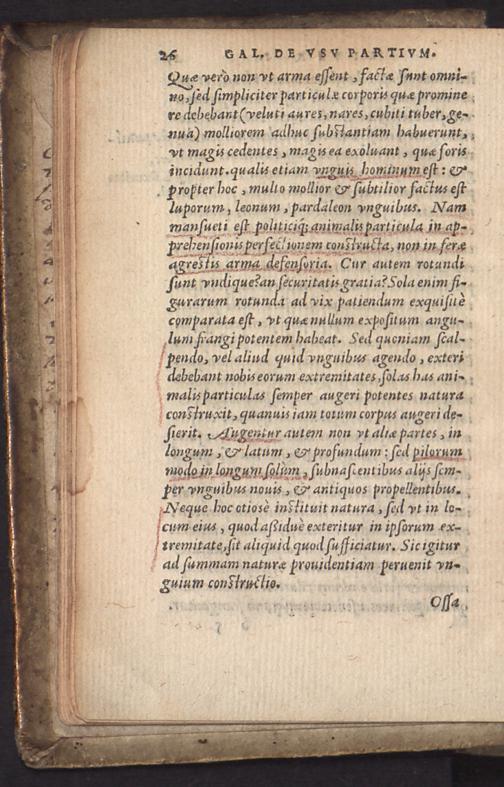 26 GAL. DE VSV PARTIVM.
Quæ verò non vt arma essent, factæ sunt omni-
no, sed simpliciter particulæ corporis quæ promine
re debebant (veluti aures, nares, cubiti tuber, ge-
nua) molliorem adhuc substantiam habuerunt,
vt magis cedentes, magis ea exoluant, quæ foris
incidunt. qualis etiam vnguis hominum est: &
propter hoc, multo mollior & subtilior factus est
luporum, leonum, pardaleon vnguibus. Nam
mansueti est politiciq; animalis particula in ap-
prehensionis perfectionem constructa, non in feræ
agrestis arma defensoria. Cur autem rotundi
sunt vndique? an securitatis gratia? Sola enim fi-
gurarum rotunda ad vix patiendum exquisitè
comparata est, vt quæ nullum expositum angu-
lum frangi potentem habeat. Sed quoniam scal-
pendo, vel aliud quid vnguibus agendo, exteri
debebant nobis eorum extremitates, solas has ani-
malis particulas semper augeri potentes natura
construxit, quanuis iam totum corpus augeri de-
sierit. Augentur autem non vt aliæ partes, in
longum, & latum, & profundum: sed pilorum
modo in longum solùm, subnascentibus alijs sem-
per vnguibus nouis, & antiquos propellentibus.
Neque hoc otiosè instituit natura, sed vt in lo-
cum eius, quod aßiduè exteritur in ipsorum ex-
tremitate, sit aliquid quod sufficiatur. Sic igitur
ad summam naturæ prouidentiam peruenit vn-
guium constructio.
Ossa